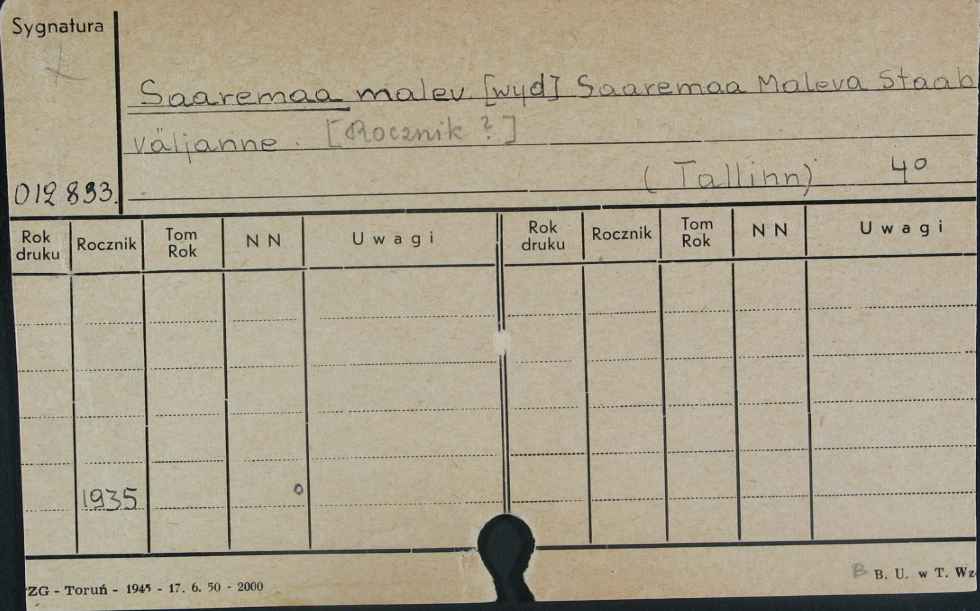 Sygnatura
Saaremaa malev. [wyd] Saaremaa Maleva Staab
väljanne. [Rocznik ?]
(Tallinn) 4º
012 893.
Rok druku Rocznik Tom Rok N N Uwagi Rok druku Rocznik Tom Rok N N Uwagi
1935
ZG - Toruń - 1945 - 17. 6. 50 - 2000 B. U. w T. Wz